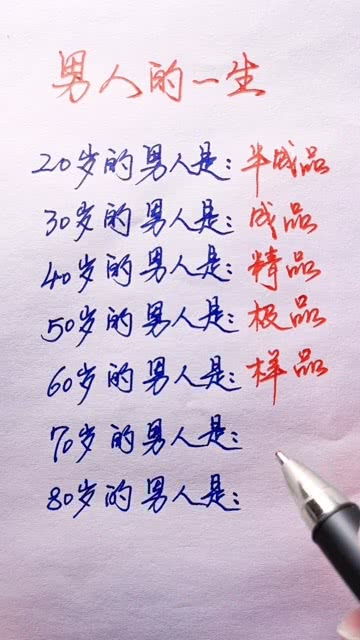 男人的一生
20岁的男人是：半成品
30岁的男人是：成品
40岁的男人是：精品
50岁的男人是：极品
60岁的男人是：样品
70岁的男人是：
80岁的男人是：